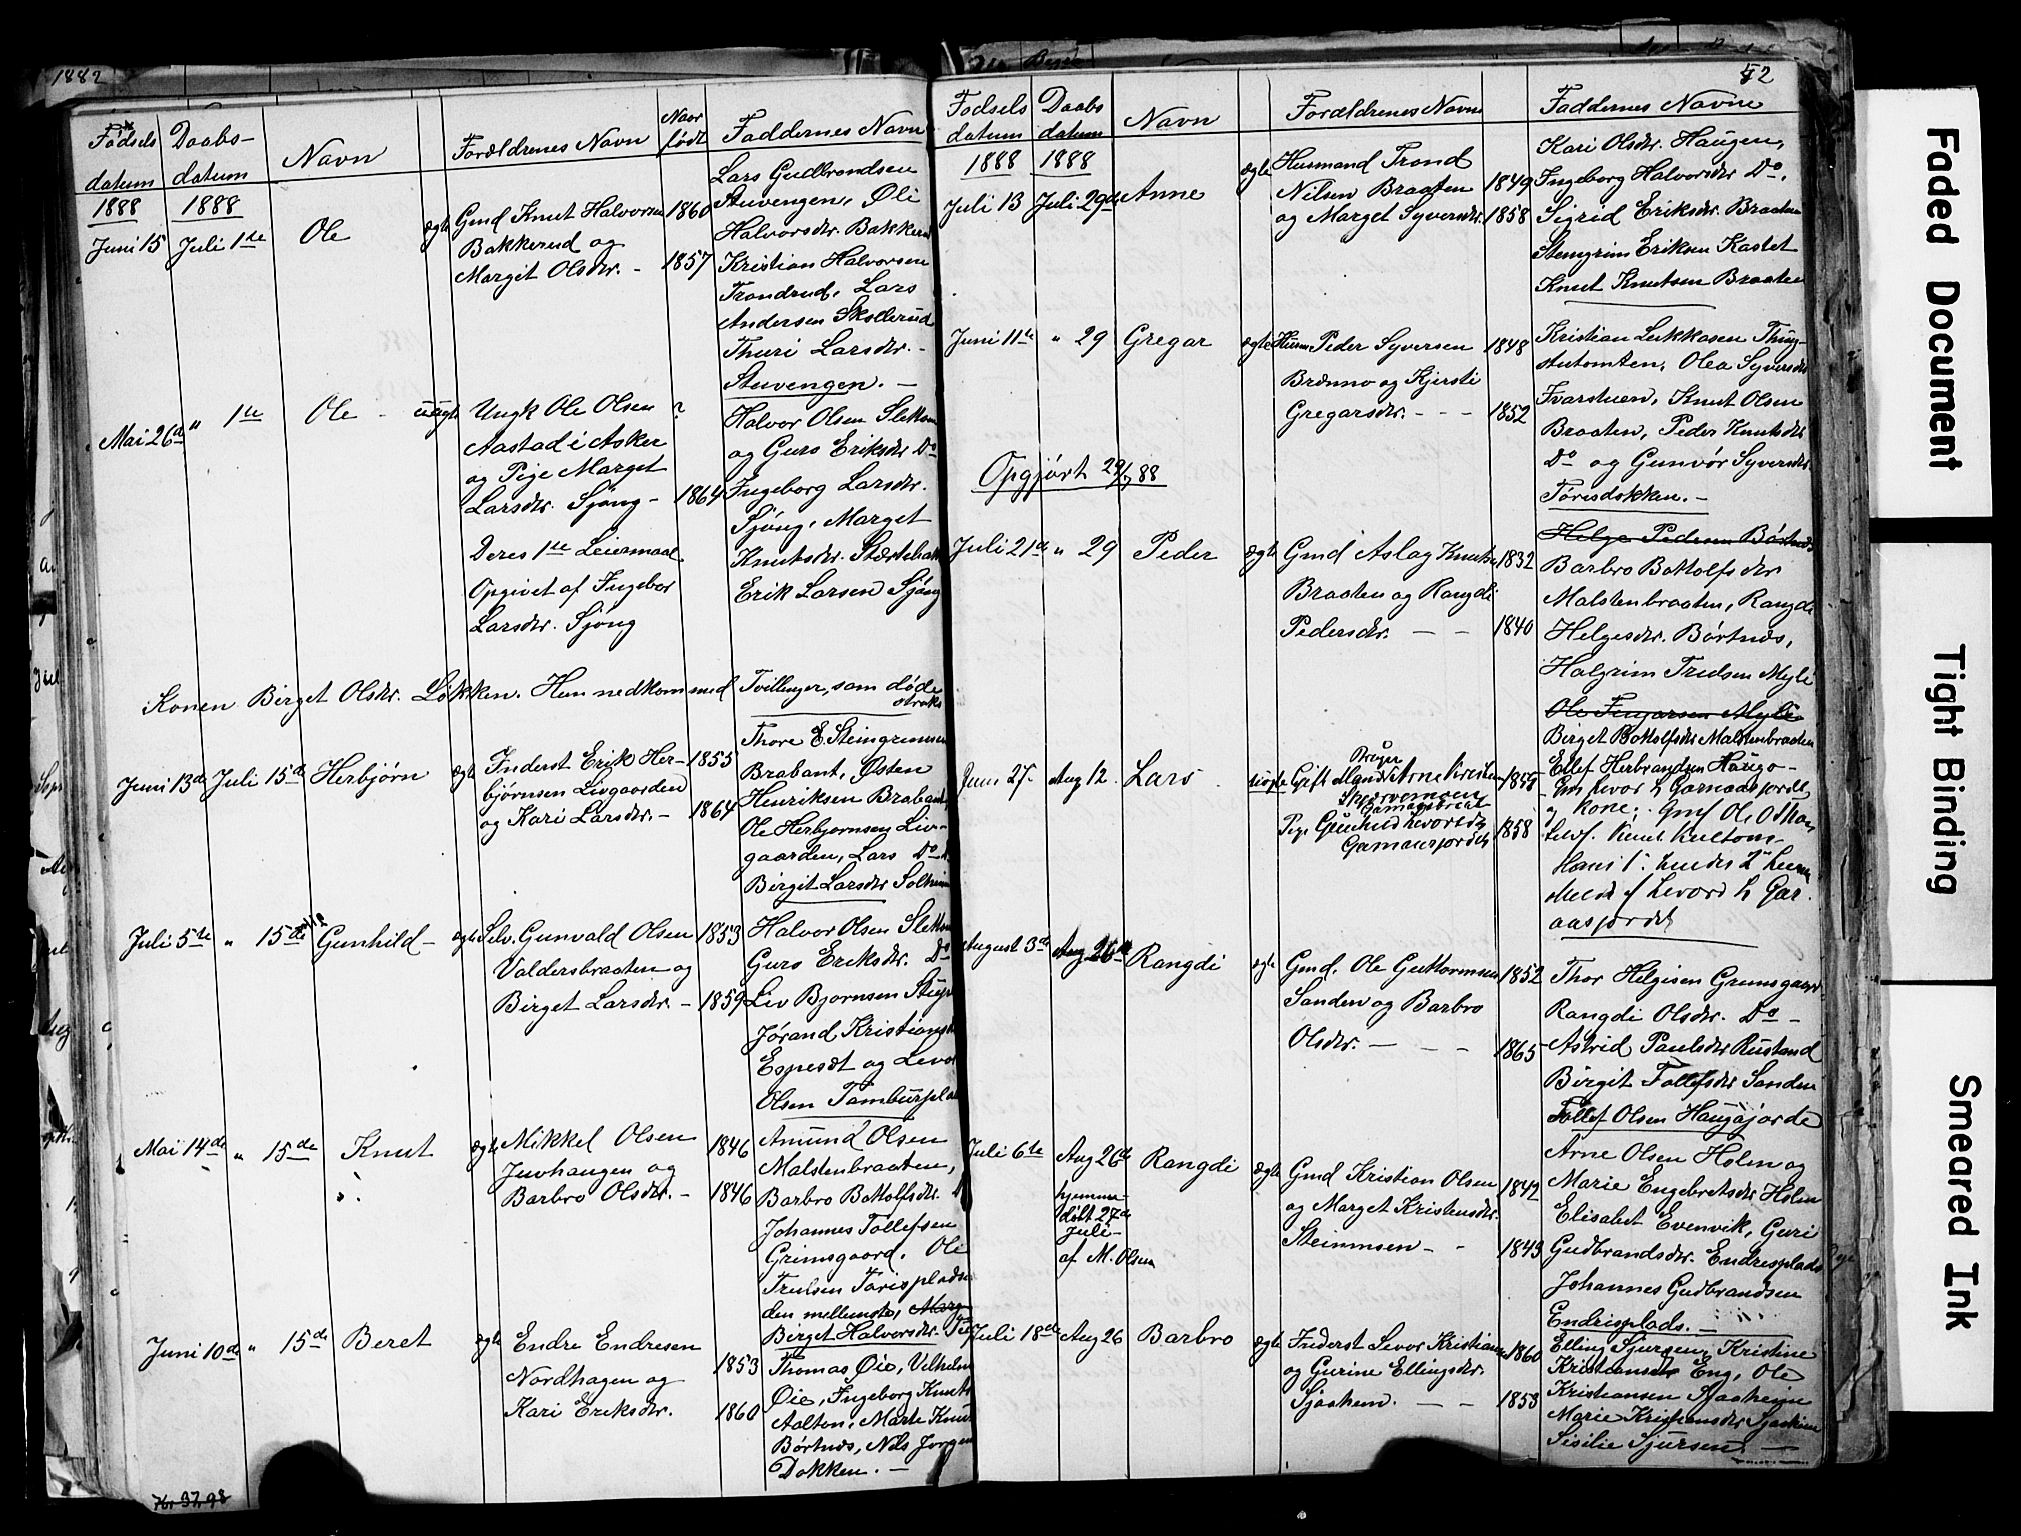 1882
Fødsels datum
Daabs- datum
Navn
Forældrenes Navn
Naar født
Faddernes Navn
1888 1888
Juni 15 Juli 1te Ole ægte
Gmd Knut Halvorsen 1860
Bakkerud og
Margit Olsdtr. - 1857
Lars Gudbrandsen
Stuvengen, Oli
Halvorsdtr. Bakkerud
Kristian Halvorsen
Trondrud, Lars
Andersen Skollerud
Thuri Larsdtr. -
Stuvengen. -
Mai 26de " 1te Ole - uægte
Ungk Ole Olsen ?
Aastad i Asker
og Pige Marget
Larsdtr. Sjong - 1864
Deres 1te Leiermaal
Opgivet af Ingebor
Larsdtr. Sjong
Halvor Olsen Slettem
og Guro Eriksdtr Do
Ingeborg Larsdtr.
Sjong, Marget
Knutsdtr.
Erik Larsen Sjong
Konen Birget Olsdtr. Løkken. Hun nedkom med Tvillinger, som døde
straks
Juni 13de Juli 15de Herbjørn ægte
Inderst Erik Her- 1855
bjørnsen Livgaarden
og Kari Larsdtr. - 1864
Thore E. Steingrimsen
Brabant, Østen
Henriksen Brabant
Ole Herbjornsen Liv-
gaarden, Lars Do
Birgit Larsdtr Solheim
Juli 5te " 15de Gunhild - ægte
Selv. Gunvald Olsen 1853
Valdersbraaten og
Birget Larsdtr. - 1859
Halvor Olsen Slettem
Guro Eriksdtr. Do
Liv Bjornsen
Jørand
Espeset og Levor
Olsen
Mai 14de " 15de Knut ægte
Mikkel Olsen 1846
Juvhaugen og
Barbro Olsdtr. - 1846
Amund Olsen
Malstenbraaten,
Barbro Bottolfsdtr.
Johannes Tollefsen
Grimsgaard. Ole
Trulsen
den mellemste,
Birget Halvorsdtr.
Juni 10de " 15de Beret ægte
Endre Endresen
Nordhagen og 1853
Kari Eriksdtr. 1860
Thomas Øie, Vilhelm
Øie, Ingeborg Knuts
Aalton, Marte Knuts
Børtnes, Nils Jorgen
Dokken. -
Kr 37,98
52
Fødsels datum
Daabs datum
Navn
Forældrenes Navn
Faddernes Navne
1888 1888
Juli 13 Juli 29de Anne ægte
Husmand Trond
Nilsen Braaten 1849
og Marget Syversdtr. 1858
Kari Olsdtr. Haugen,
Ingeborg Halvorsdtr Do,
Sigrid Eriksdtr. Braaten
Stengrim Eriksen Kastet
Knut Knutsen Braaten
Juni 11te " 29 Gregar ægte
Husm Peder Syversen 1848
Brenno og Kjersti
Gregarsdtr. - - - 1852
Kristian Lukkasen
Olea Syversdtr
Knut Olsen
Braaten, Peder Knutsdtr
Do og Gunvør Syversdtr.
Torisdokken. -
Opgjørt 29/7 88
Juli 21de " 29 Peder ægte
Gmd Aslag Knutsen 1832
Braaten og Rangdi
Pedersdtr. - - 1840
Helge Pedersen Børtnes
Barbro Bottolfsdtr
Malstenbraaten, Rangdi
Helgesdtr. Børtnes,
Halgrim Trulsen Myle
Ole Ingarsen Myle
Birget Bottolfsdtr Malstenbraaten
Juni 27. Aug 12. Lars uægte
Gift Mand Arne
1858
Pige Gunhild Levorsdtr
Ellef Herbrandsen Haugo-
Gm Levor h
kone;
aasjordet
August 3de Aug 26de Rangdi ægte
Gmd. Ole Guttormsen 1852
Sanden og Barbro
Olsdtr. - - - 1865
Thor Helgisen Grimsgaard
Rangdi Olsdtr. Do -
Astrid Paulsdtr Rustand
Birgit Tollefsdtr Sanden
Tollef Olsen Haugsjorde
Juli 6te Aug 26de Rangdi ægte
hjemme-
døbt 27de
Juli -
af M. Olsen
Gmd Kristian Olsen 1842
og Marget Kristensdtr.
Steinmoen - - 1843
Arne Olsen Holm og
Marie Engebretsdtr Holm
Elisabet Evenvik, Guri
Gudbrandsdtr. Endresplads
Johannes Gudbrandsen
Endrisplads. -
Juli 18de Aug 26 Barbro ægte
Inderst Levor Kristiansen 1860
og Gurine Ellingsdtr.
Sjaahem. - - 1853
Elling Sjursen, Kristine
Kristiansdtr Eng, Ole
Kristiansen Sjaaheim
Marie Kristiansdtr Sjaahim
Sisilie Sjursen. -
Faded Document
Tight Binding
Smeared Ink